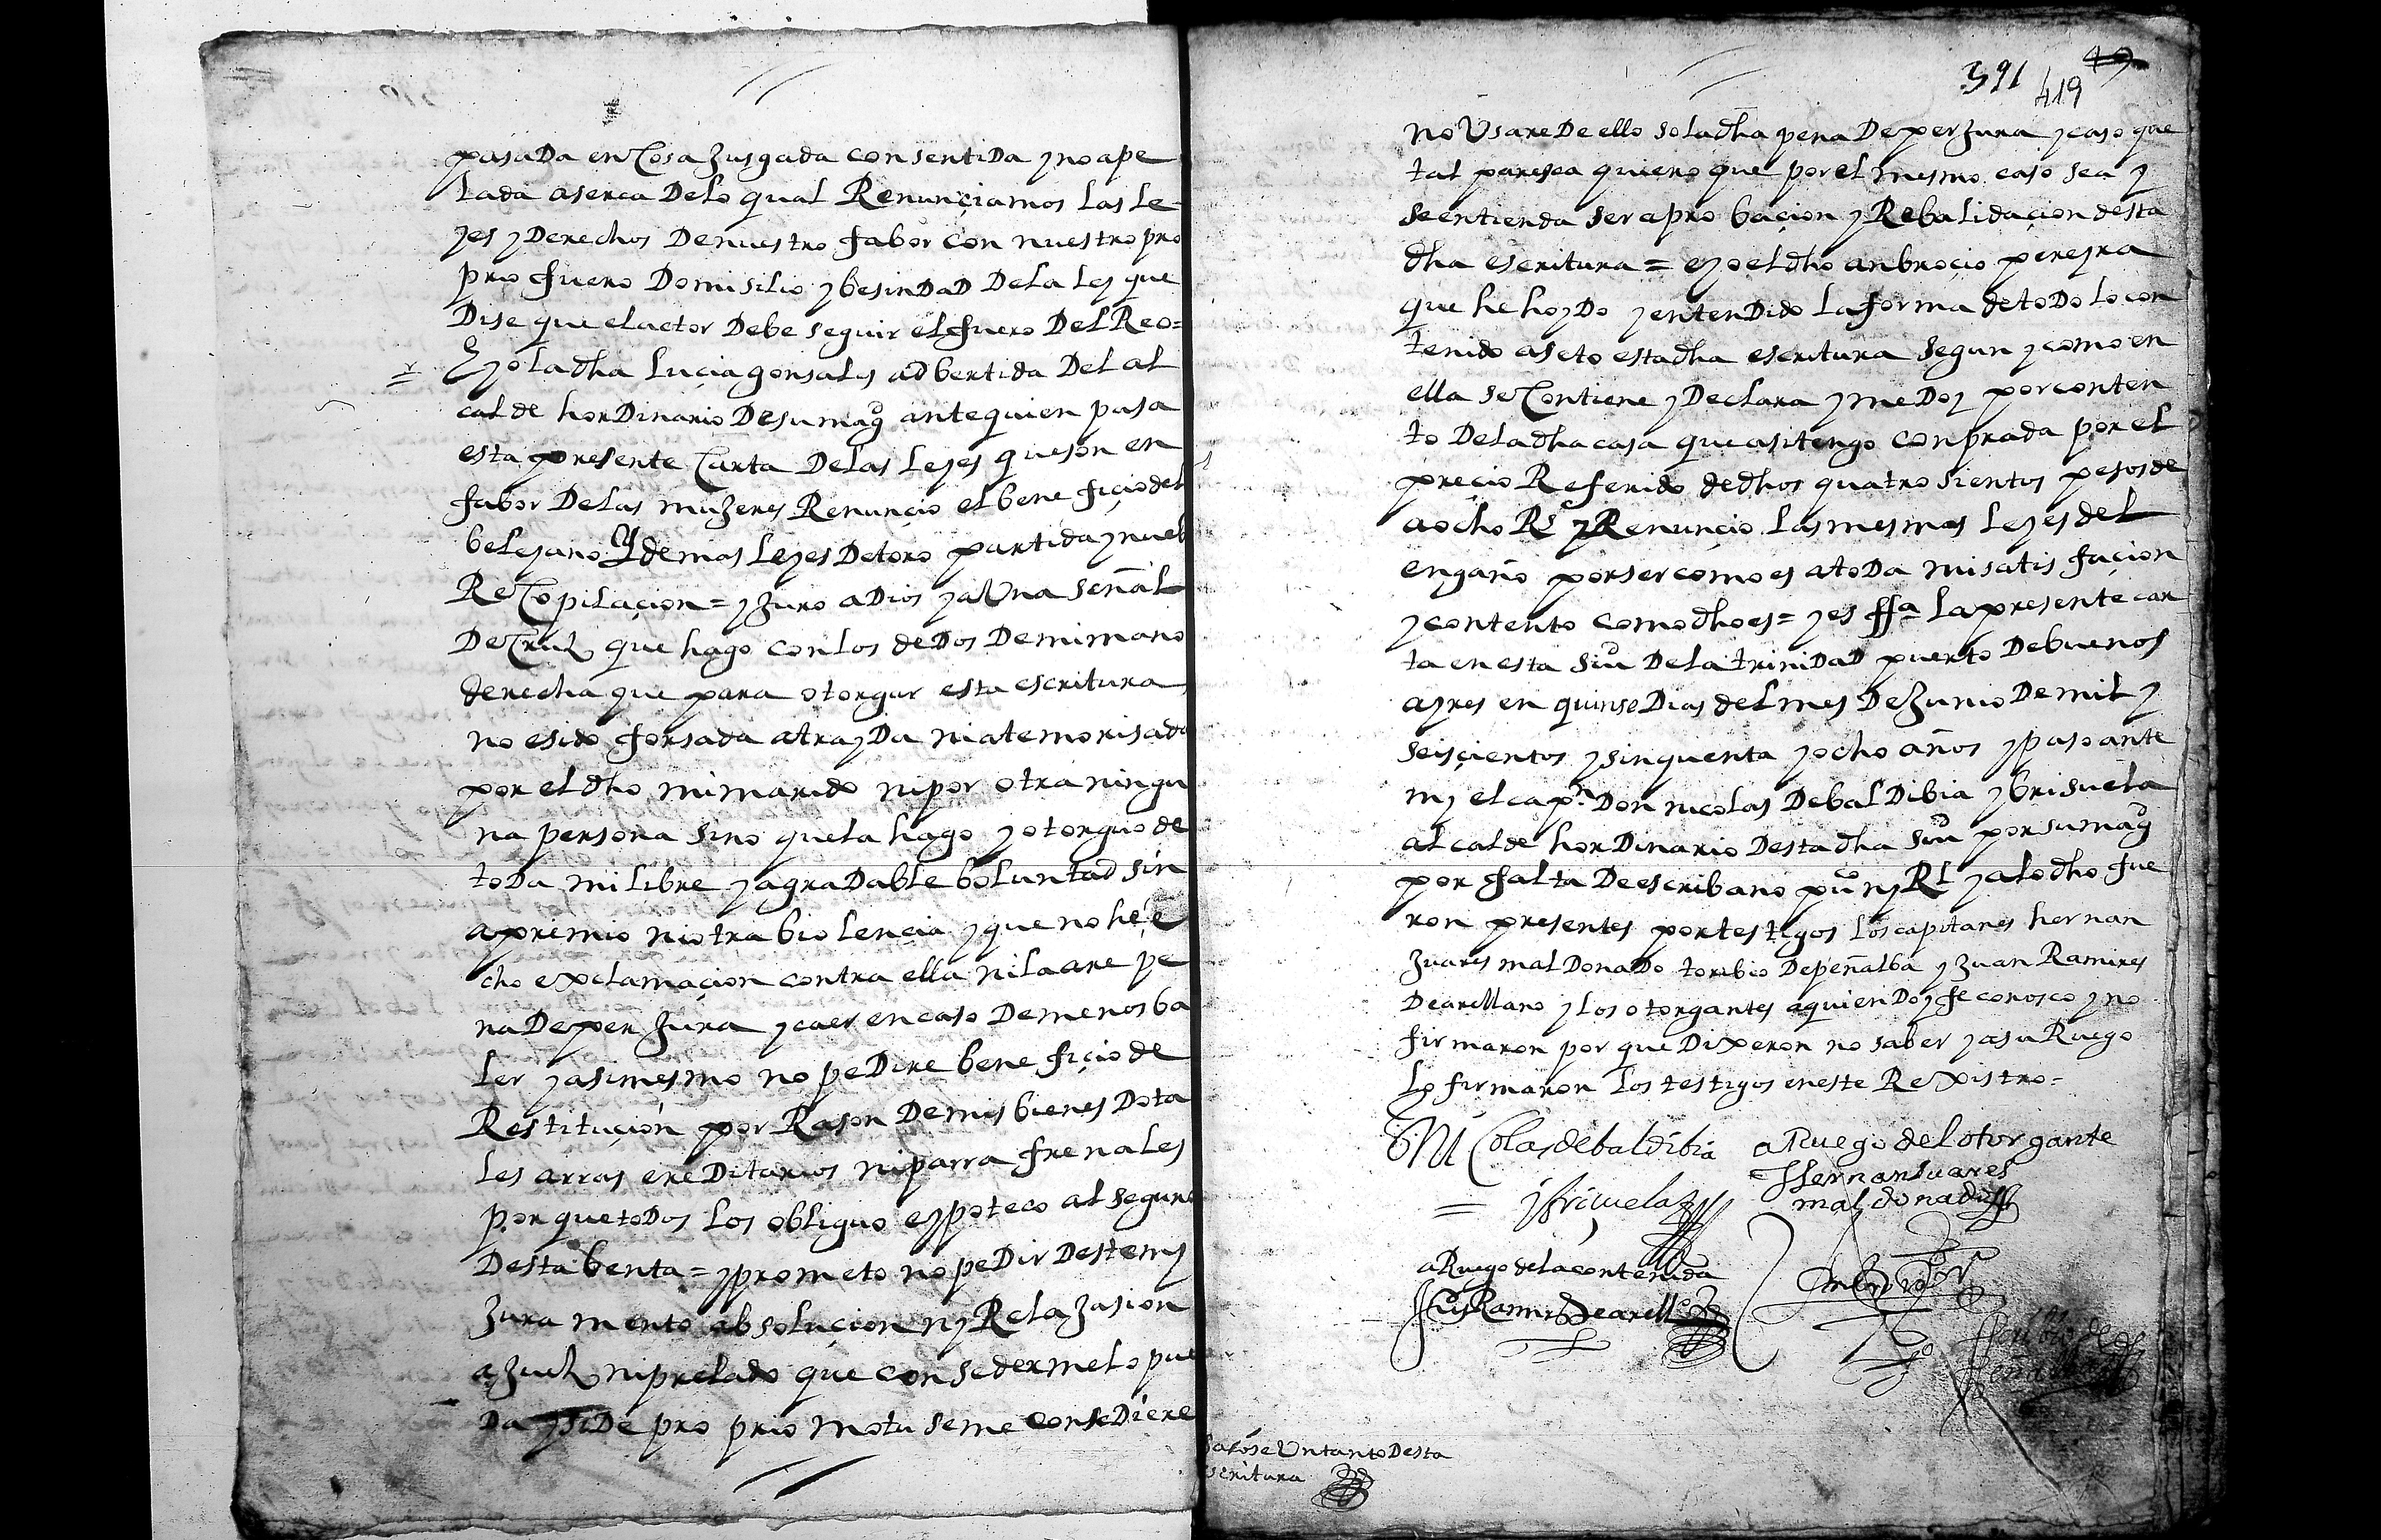 pasada en Cosa Jusgada consentida y no ape
lada aserca de lo qual Renunçiamos las le
yes y Derechos De nuestro fabor con nuestro pro
prio fuero Domisilio y besindad De la ley que
Dise que el actor Debe seguir el fuero Del Reo=
E yo la dha Luçia gonsales adbertida Del al
calde hordinario De su magd ante quien pasa
esta presente Carta De las leyes que son en
fabor De las mugeres Renunçio el benefiçio del
beleyano y demas leyes De toro partida y nueb
ReCopilaçion = y Juro a Dios y a Una señal
De Cruz que hago con los dedos De mi mano
derecha que para otorgar esta escritura
no e sido forsada atrayda ni atemorisada
por el dho mi marido ni por otra ningu
na persona sino que la hago y otorguo de
toda mi libre y agradable boluntad sin
apremio ni otra biolençia y que no he e
cho exclamaçion contra ella ni la are pe
na De perjura y caer en caso De menos ba
ler y asimesmo no pedire benefiçio de
Restituçion por Rason De mis bienes Dota
les arras ereditarios ni parrafrenales
porque todos los obliguo e ypoteco al seguro
Desta benta = y prometo no pedir Deste my
Juramento absoluçion ny Relajasion
a Juez ni prelado que consedermelo pue
da y si De proprio motu se me consediere
391 419 49
no Usare De ello so la dha pena De perjura y caso que
tal paresca quiero que por el mesmo caso sea y
se entienda ser aprobaçion y Rebalidaçion desta
dha escritura = e yo el dho anbroçio pereyra
que he hoydo y entendido la forma de todo lo con
tenido aseto esta dha escritura segun y como en
ella se Contiene y Declara y me Doy por conten
to De la dha casa que asi tengo conprada por el
preçio Referido de dhos quatrosientos pesos de
a ocho Rs y Renunçio las mesmas leyes del
engaño por ser como es a toda mi satisfaçion
y contento como dho es = y es ffa la presente car
ta en esta siud De la trinidad puerto De buenos
ayres en quinse Dias del mes De Junio De mil y
seisçientos y sinquenta y ocho años y paso ante
my el capn Don nicolas De baldibia y brisuela
alcalde hordinario Desta dha siud por su magd
por falta De escribano puco ny Rl y a lo dho fue
ron presentes por testigos los capitanes hernan
Juares maldonado toribio De peñalba y Juan Ramires
De arellano y los otorgantes a quien Doy fe conosco y no
firmaron por que Dixeron no saber y a su Ruego
lo firmaron los testigos en este Rexistro=
Nicolas de baldibia
y briçuela
a Ruego del otorgante
Hernan suares
maldonado
a Ruego de la contenida
Ju Ramires De arello
toribio de
peñalba
sacóse Un tanto Desta
scritura